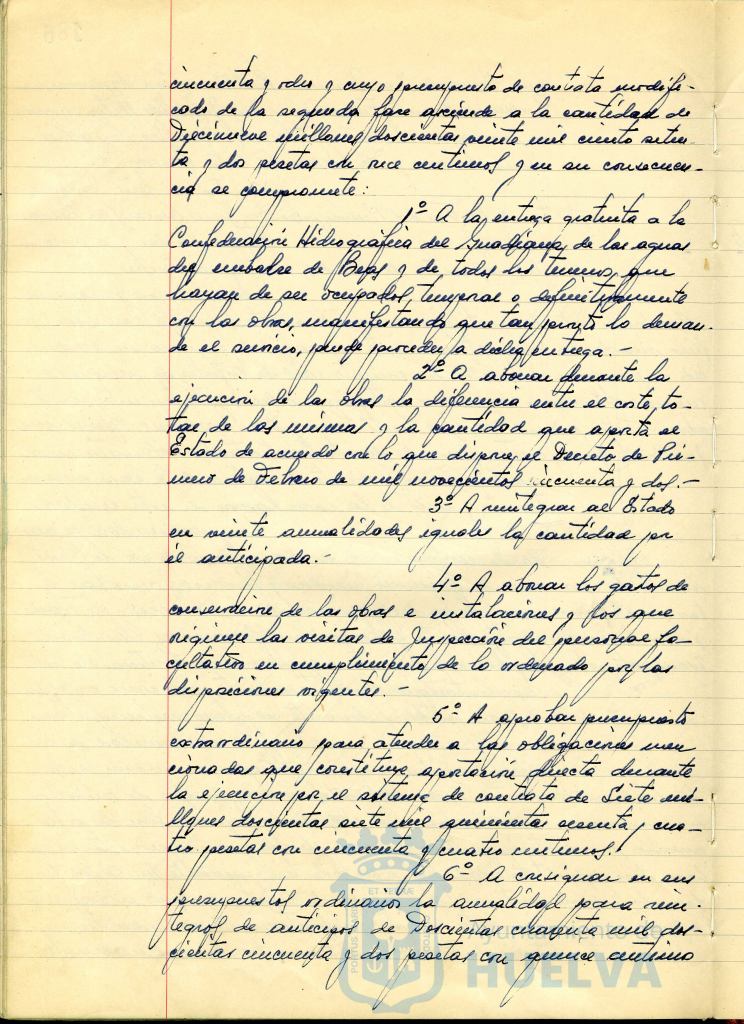 cincuenta y ocho y cuyo presupuesto de contrata modifi-
cado de la segunda fase asciende a la cantidad de
Diecinueve millones doscientas veinte mil ciento seten-
ta y dos pesetas con once centimos y en su consecuen-
cia se compromete:
1º A la entrega gratuita a la
Confederación Hidrográfica del Guadiana, de las aguas
del embalse de Beas y de todos los terrenos, que
hayan de ser ocupados, temporal o definitivamente
con las obras, manifestando que tan pronto lo deman-
de el servicio, puede proceder a dicha entrega.-
2º A abonar durante la
ejecución de las obras la diferencia entre el coste, to-
tal de las mismas y la cantidad que aporta el
Estado de acuerdo con lo que dispone el Decreto de Pri-
mero de Febrero de mil novecientos cincuenta y dos.-
3º A reintegrar al Estado
en veinte anualidades iguales la cantidad por
él anticipada.-
4º A abonar los gastos de
conservación de las obras e instalaciones y los que
origine las visitas de Inspección del personal fa-
cultativo en cumplimiento de lo ordenado por las
disposiciones vigentes.-
5º A aprobar presupuesto
extraordinario para atender a las obligaciones men
cionadas que constituye aportación directa durante
la ejecución por el sistema de contrata de Siete mi-
llones doscientas siete mil quinientas sesenta y cua-
tro pesetas con cincuenta y cuatro centimos.
6º A consignar en sus
presupuestos ordinarios la anualidad para rein-
tegros, de anticipos de Doscientas cuarenta mil dos-
cientas cincuenta y dos pesetas con quince centimo
Ayuntamiento de
HUELVA